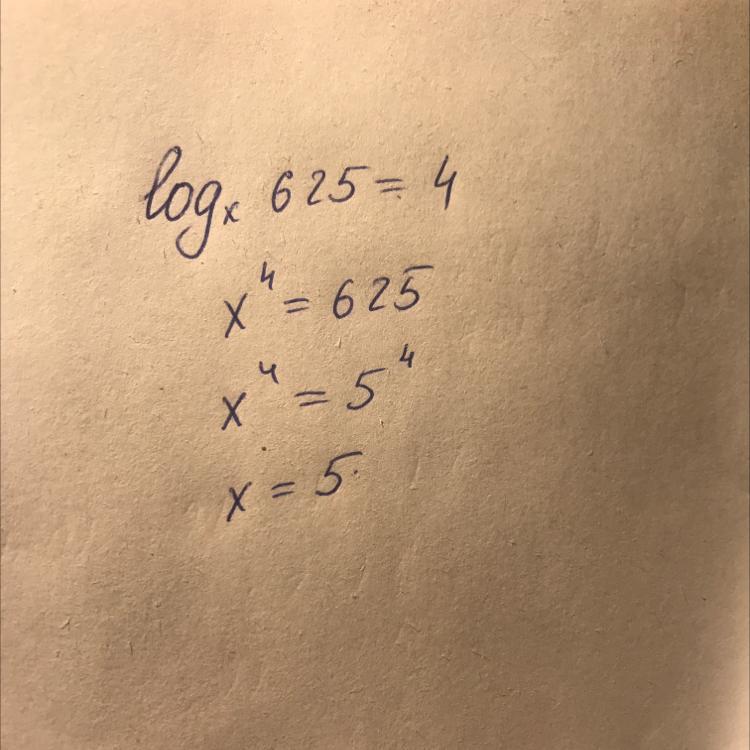 logₓ 625 = 4
x⁴ = 625
x⁴ = 5⁴
x = 5.